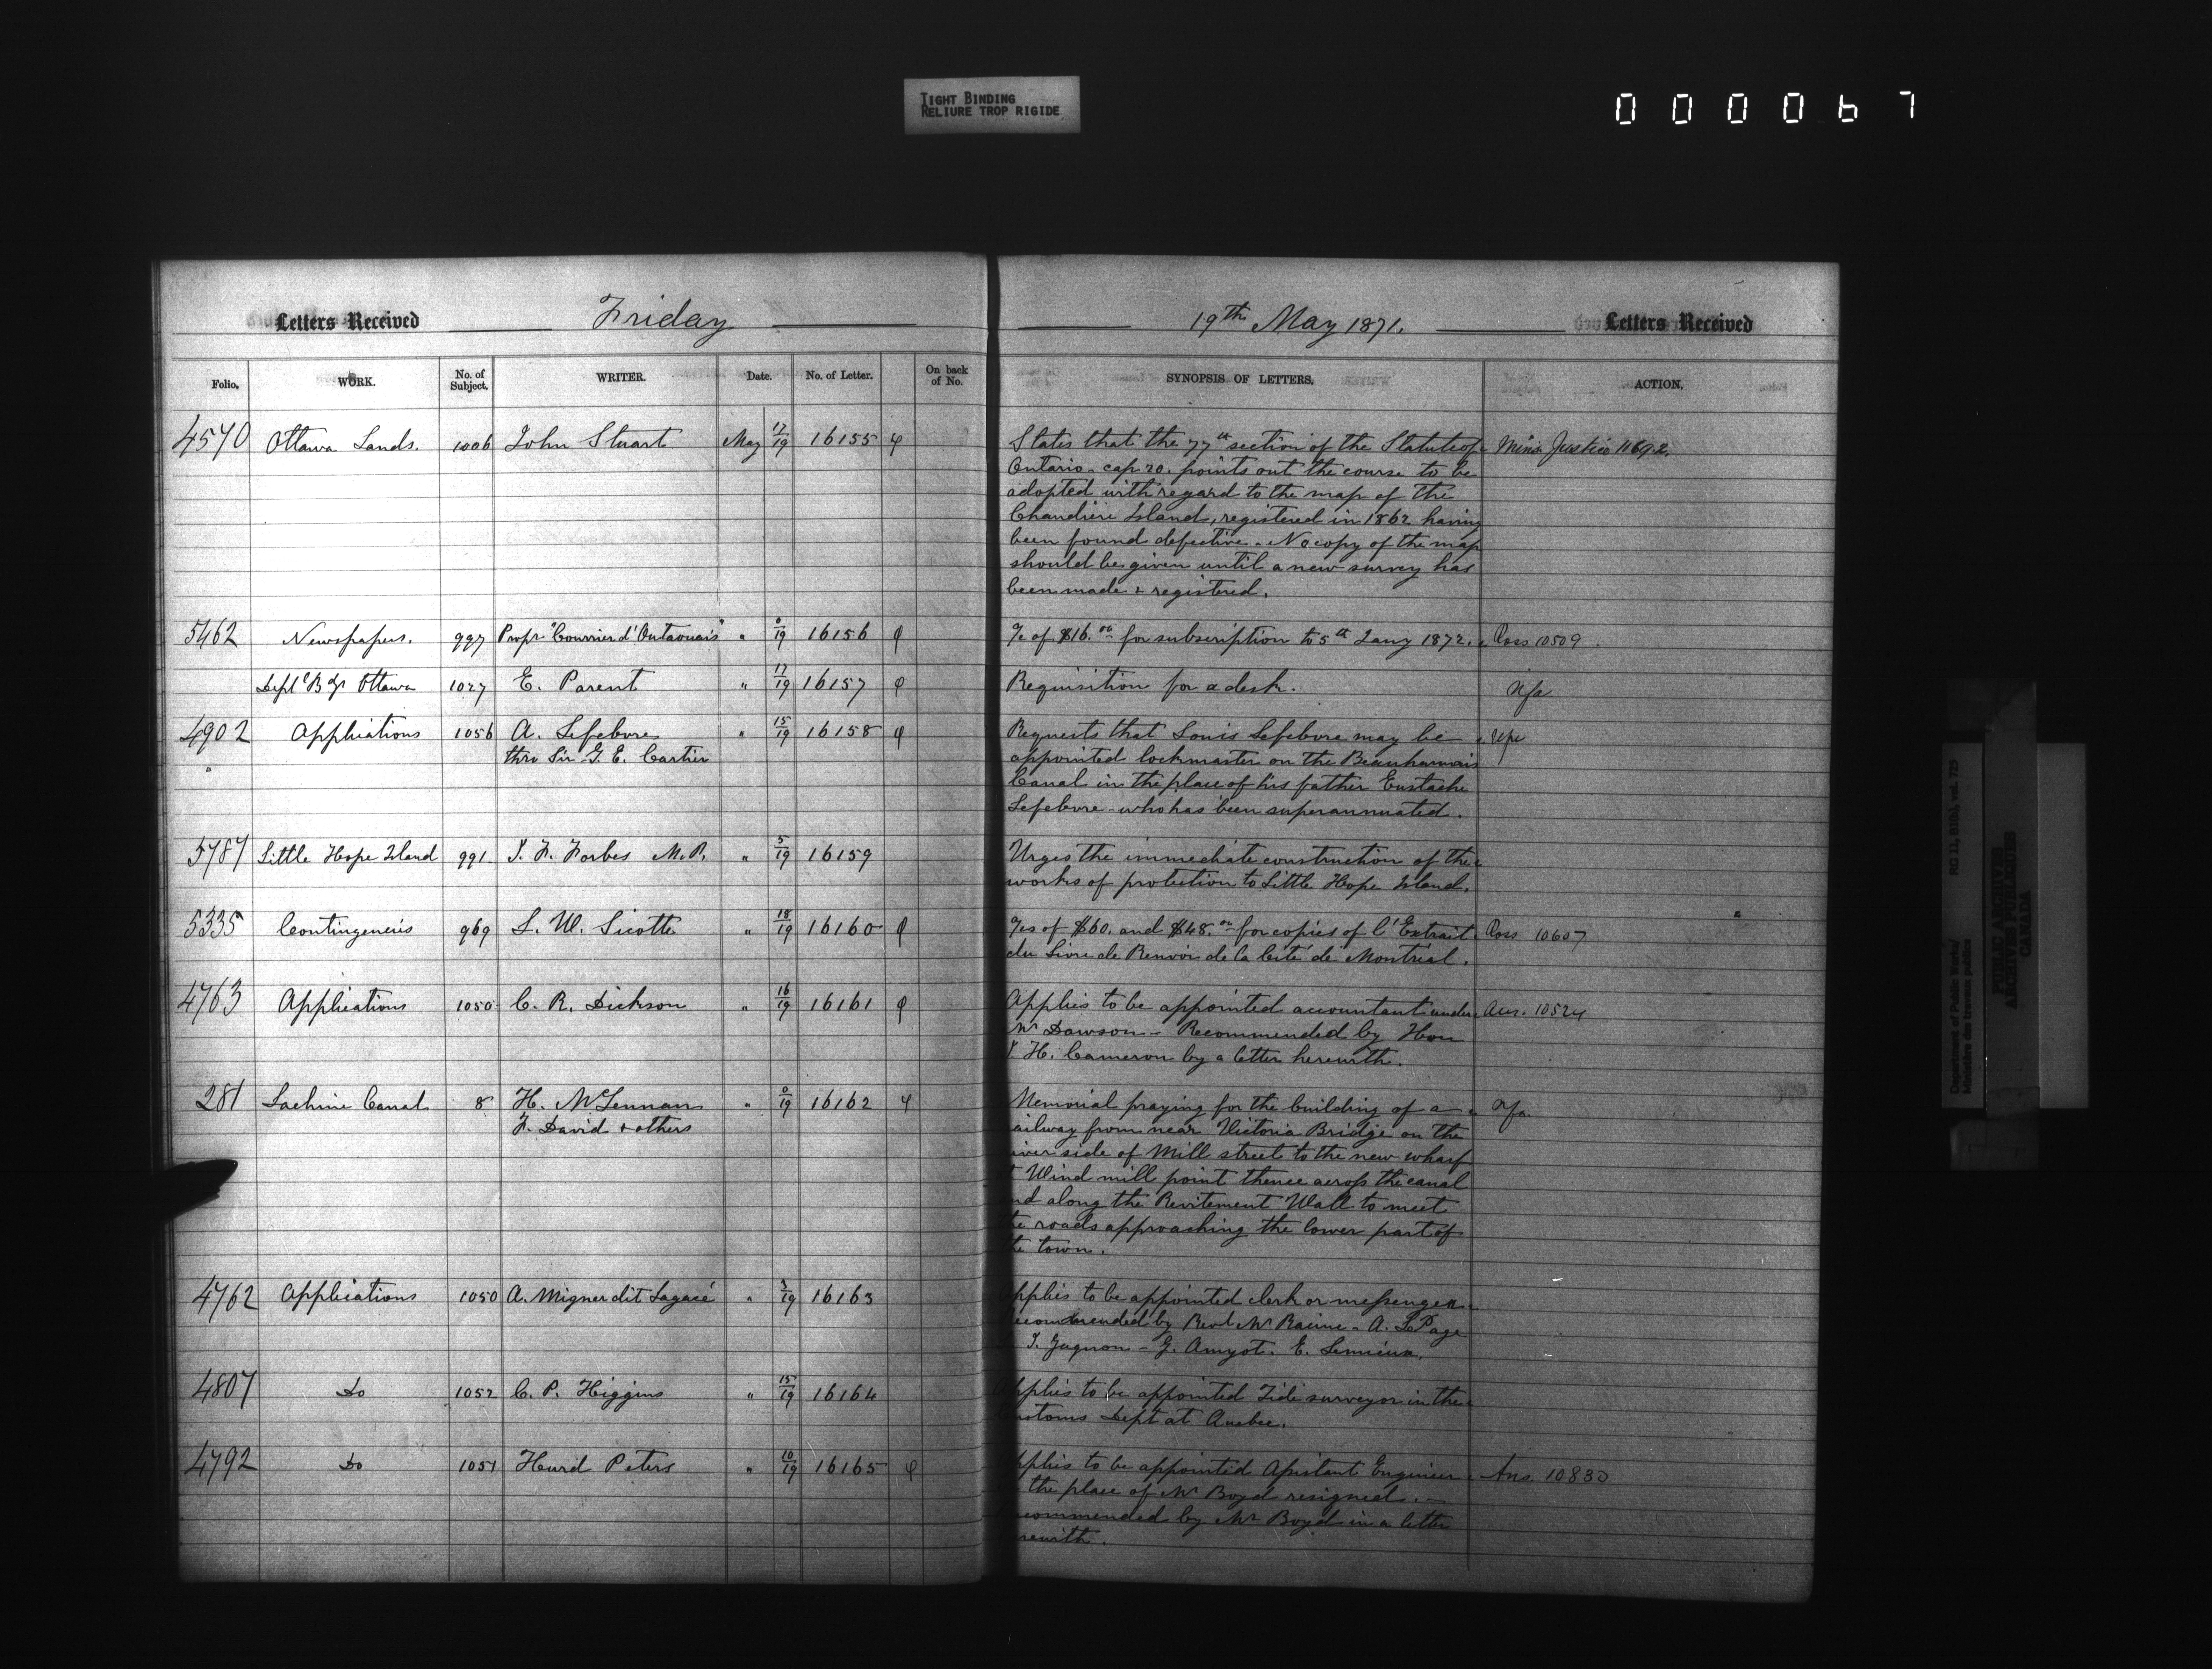 TIGHT BINDING
RELIURE TROP RIGIDE
000067
Letters Received Friday
19th May 1871. Letters Received
Folio. WORK. No. of Subject. WRITER. Date. No. of Letter. On back of No.
SYNOPSIS OF LETTERS. ACTION.
4570 Ottawa Lands. 1006 John Stuart May 17/19 16155
States that the 77th section of the Statute of Minr. Justice 11692.
Ontario - cap 20. points out the course to be
adopted with regard to the map of the
Chaudiere Island, registered in 1862 having
been found defective. No copy of the map
should be given until a new survey has
been made & registered.
5462 Newspapers. 997 Propr "Courrier d'Outaouais" " 0/19 16156
a/c of $16.00 for subscription to 5th Jany 1872. Ross 10509
Deptl Bdgs Ottawa 1027 E. Parent " 17/19 16157
Requisition for a desk. Nfa
4902 Applications 1056 A. Lefebvre " 15/19 16158
thro Sir G. E. Cartier
Requests that Louis Lefebvre may be
appointed lockmaster on the Beauharnois
Canal in the place of his father Eustache
Lefebvre who has been superannuated.
5787 Little Hope Island 991 J. F. Forbes M.P. " 5/19 16159
Urges the immediate construction of the
works of protection to Little Hope Island.
5335 Contingencies 969 L. W. Sicotte " 18/19 16160
a/cs of $60. and $48.00 for copies of l'Extrait Ross 10607
du Livre de Renvoi de la Cité de Montréal.
4763 Applications 1050 C. R. Dickson " 16/19 16161
Applies to be appointed accountant under Ans. 10524
Mr Dawson - Recommended by Hon
J. H. Cameron by a letter herewith.
281 Lachine Canal 8 H. McLennan " 0/19 16162
F. David & others
Memorial praying for the building of a Nfa
ailway from near Victoria Bridge on the
iver side of Mill street to the new wharf
t Wind mill point thence across the canal
nd along the Revitement Wall to meet
he roads approaching the lower part of
he town.
4762 Applications 1050 A. Migner dit Lagacé " 3/19 16163
pplies to be appointed clerk or messenger
ecommended by Revd Mr Racine - A. LePage
J. Gagnon - G. Amyot. E. Lemieux.
4807 Do 1052 C. P. Higgins " 15/19 16164
pplies to be appointed Tide surveyor in the
ustoms Dept at Quebec.
4792 Do 1051 Hurd Peters " 10/19 16165
pplies to be appointed Assistant Engineer Ans. 10830
the place of Mr Boyd resigned. -
ecommended by Mr Boyd in a letter
rewith.
Department of Public Works/ RG 11, B1(b), vol. 725
Ministère des travaux publics
PUBLIC ARCHIVES
ARCHIVES PUBLIQUES
CANADA